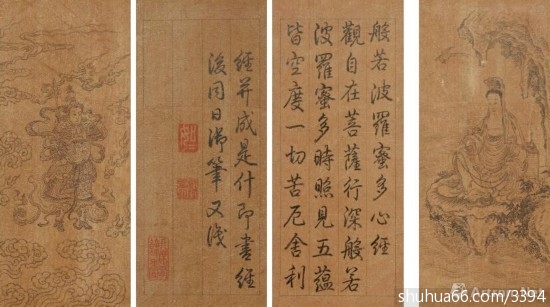 般若波羅蜜多心經
觀自在菩薩行深般若
波羅蜜多時照見五蘊
皆空度一切苦厄舍利
經并成是什即書經
後同日 筆又
shuhua66.com/3394